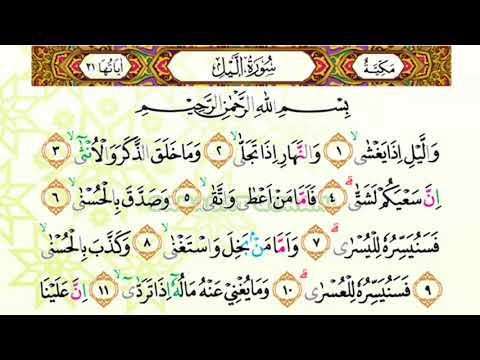 مَكِّيَّةٌ سُوْرَةُ الَّيْلِ اٰيَاتُهَا ٢١
بِسْمِ اللهِ الرَّحْمٰنِ الرَّحِيْمِ
وَالَّيْلِ اِذَا يَغْشٰىۙ ١ وَالنَّهَارِ اِذَا تَجَلّٰىۙ ٢ وَمَا خَلَقَ الذَّكَرَ وَالْاُنْثٰىٓۙ ٣
اِنَّ سَعْيَكُمْ لَشَتّٰىۗ ٤ فَاَمَّا مَنْ اَعْطٰى وَاتَّقٰىۙ ٥ وَصَدَّقَ بِالْحُسْنٰىۙ ٦
فَسَنُيَسِّرُهٗ لِلْيُسْرٰىۗ ٧ وَاَمَّا مَنْۢ بَخِلَ وَاسْتَغْنٰىۙ ٨ وَكَذَّبَ بِالْحُسْنٰىۙ
٩ فَسَنُيَسِّرُهٗ لِلْعُسْرٰىۗ ١٠ وَمَا يُغْنِيْ عَنْهُ مَالُهٗٓ اِذَا تَرَدّٰىٓۙ ١١ اِنَّ عَلَيْنَا